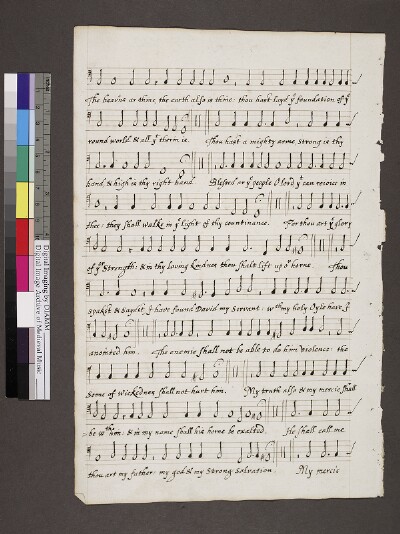 The heavens ar thine, the earth also is thine: thou hast layd yͤ foundation of yͤ
round world & all yͭ therin is. Thou hast a mighty arme strong is thy
hand, & high is thy right hand. Blessed ar yͤ people O lord yͭ can rejoice in
thee: they shall walke in yͤ light of thy countinance. For thou art yͤ glory
of yͬ strength: & in thy loving kindnes thou shalt lift up oͬ horne. Thou
spakst & saydst I have found David my servant: wͭͪ my holy oyle have I
anointed him. The enemie shall not be able to do him violence: the
sonne of wickednes shall not hurt him. My truth also & my mercie shall
be wͭͪ him: & in my name shall his horne be exalted. He shall call me
thou art my father: my god & my strong salvation. My mercie
Digital Imaging by DIAMM
Digital Image Archive of Medieval Music